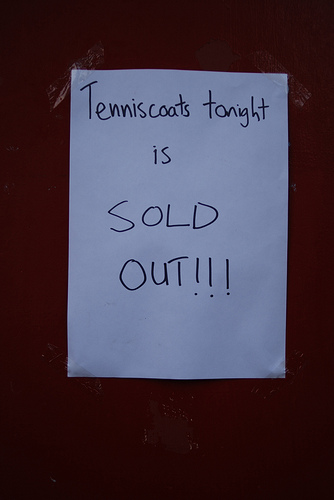 Tenniscoats tonight
is
SOLD
OUT!!!